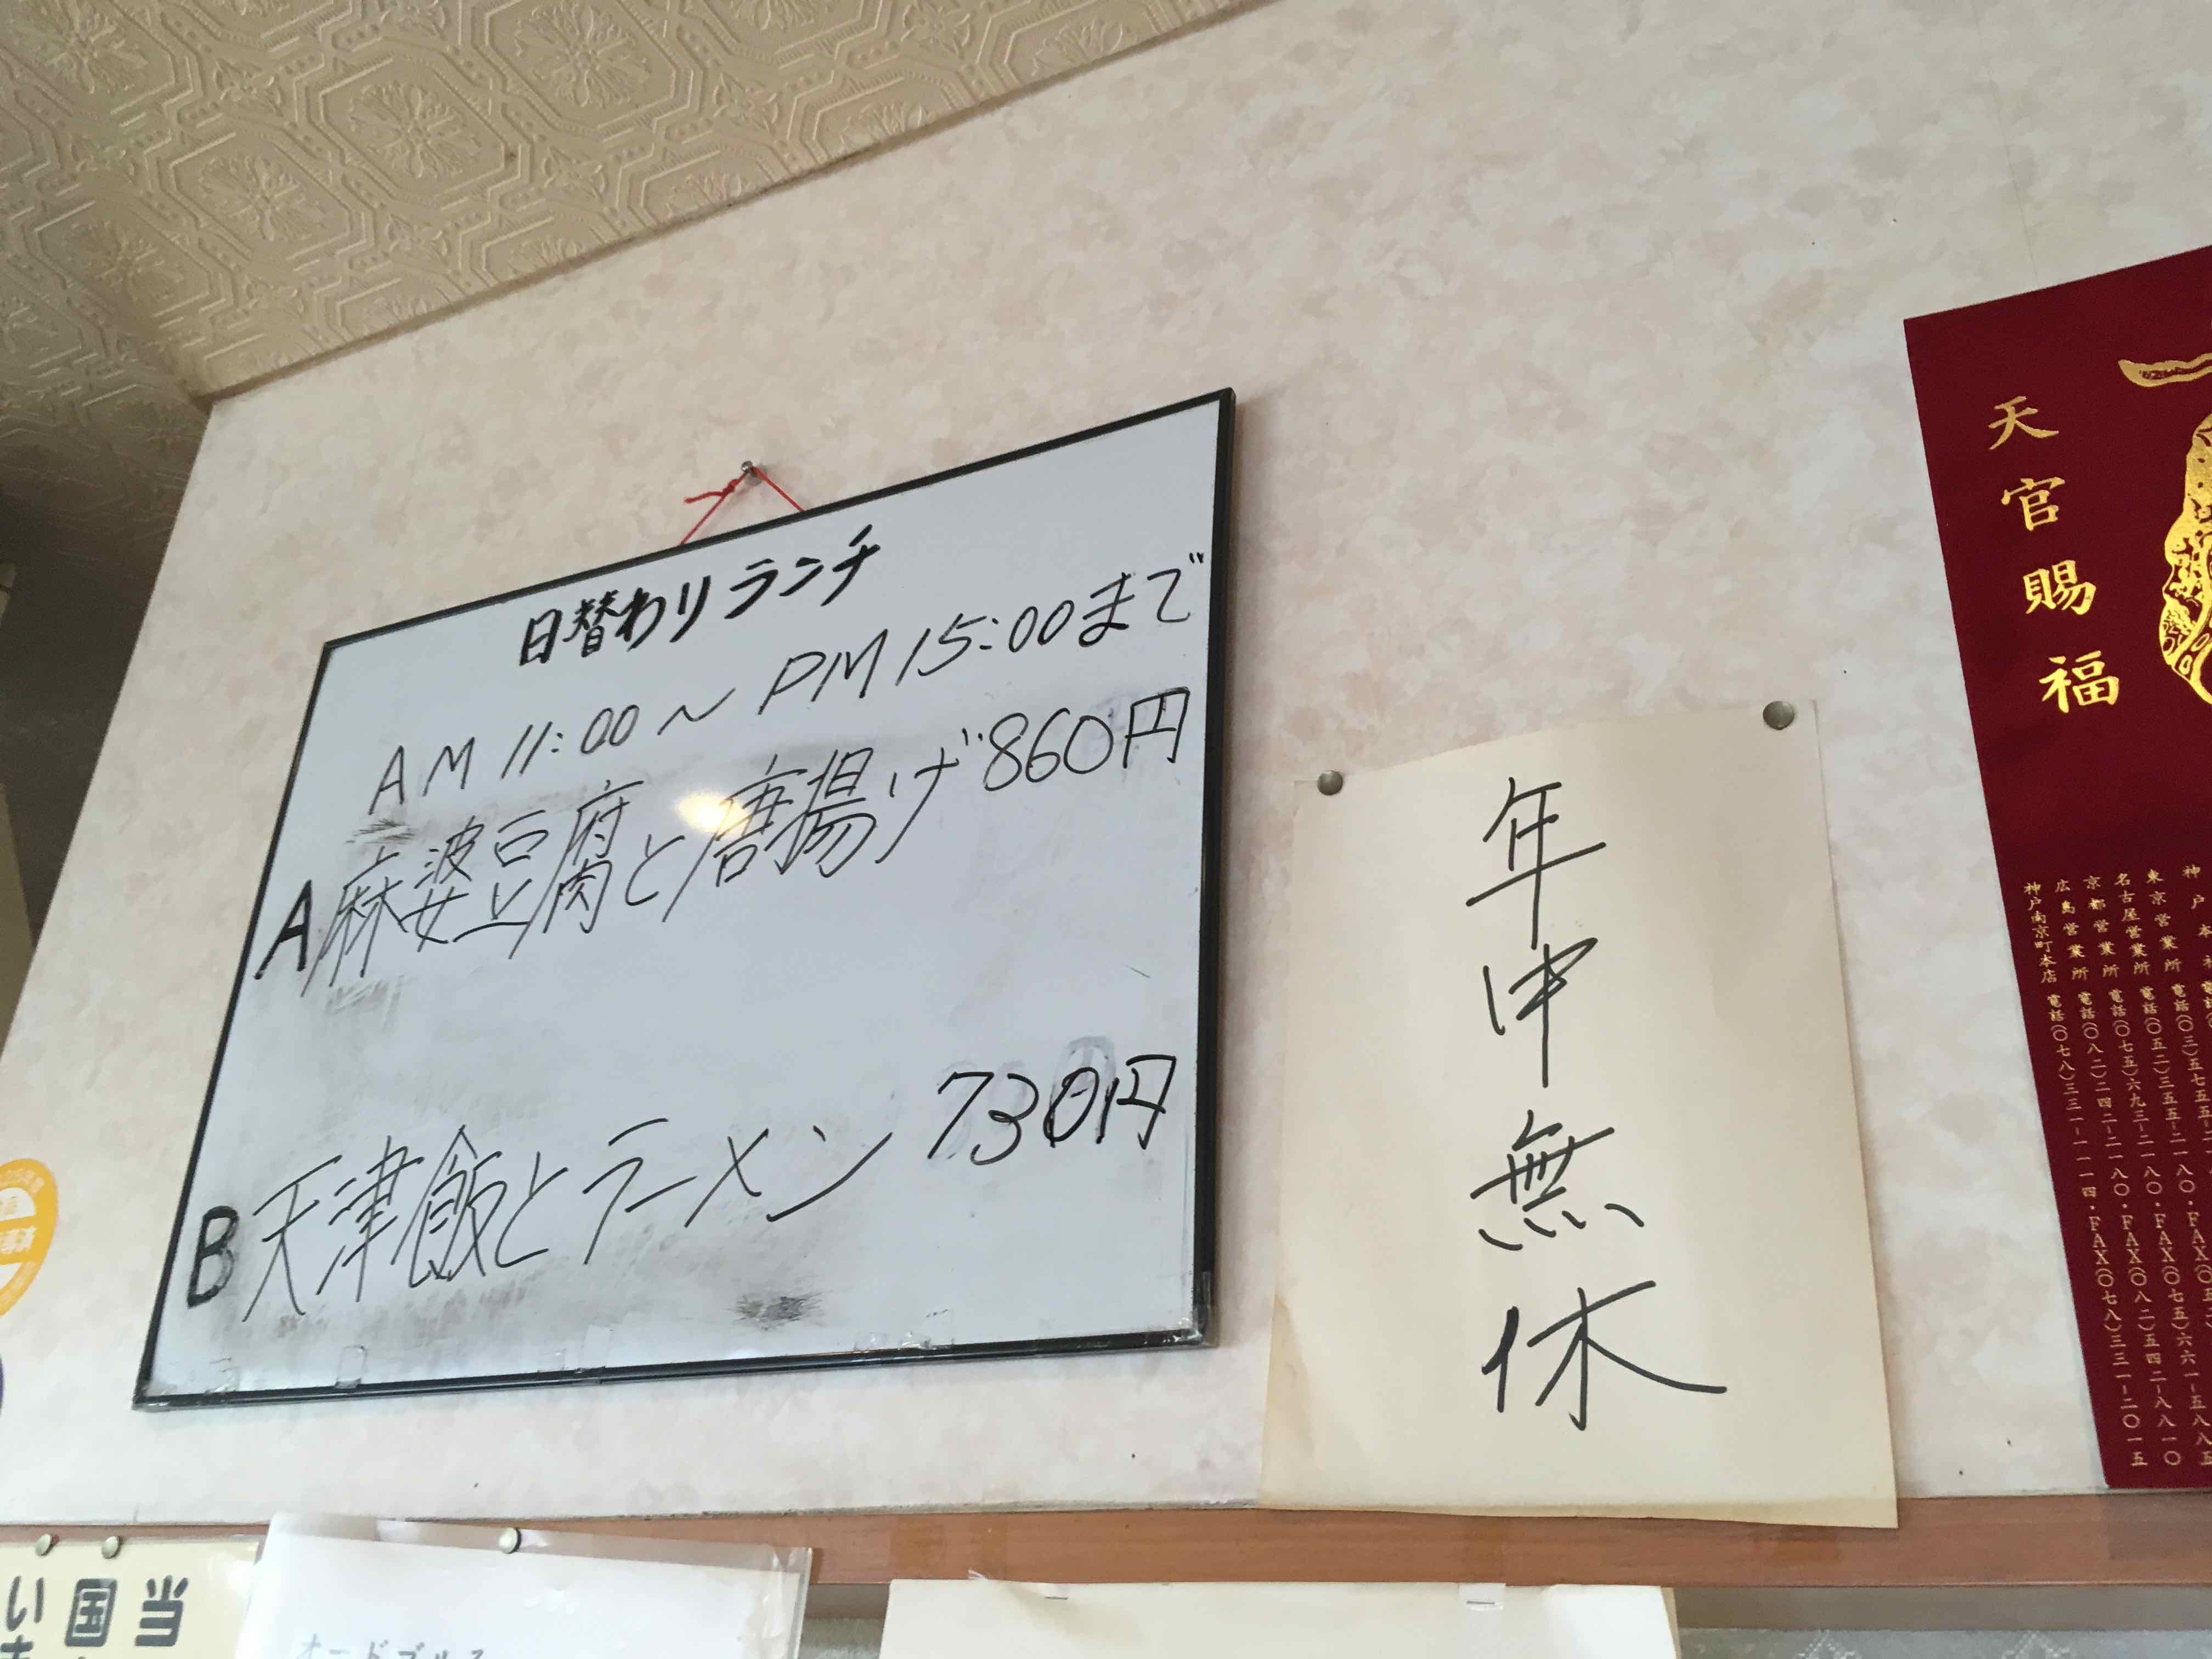 日替わりランチ
AM 11:00～PM 15:00まで
A麻婆豆腐と唐揚げ860円
B天津飯とラーメン 730円
年中無休
天官賜福
神戸本社
東京営業所 電話(〇三)五七五五-
名古屋営業所 電話(〇五二)三五五-二一八〇・FAX(〇五
京都営業所 電話(〇七五)六九三-二一八〇・FAX(〇七五)六六一-五八八五
広島営業所 電話(〇八二)二四二-二一八〇・FAX(〇八二)五四二-八八一〇
神戸南京町本店 電話(〇七八)三三一-一一一四・FAX(〇七八)三三一-二〇一五
当
国
いま
オードブル